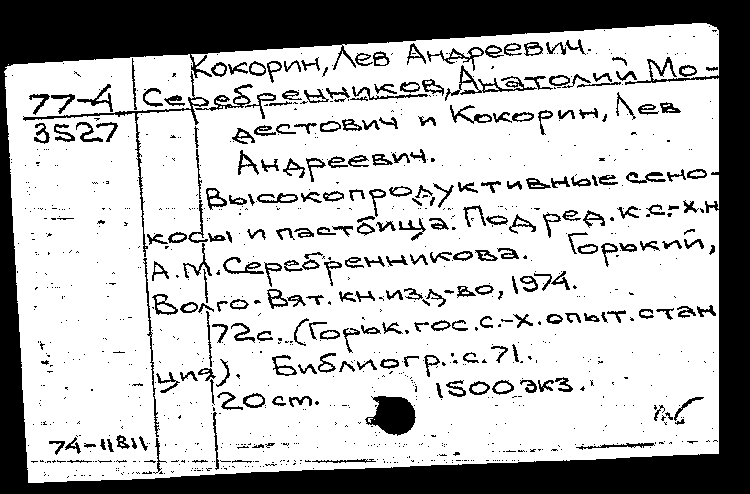 Кокорин, Лев Андреевич.
77-4 Серебренников, Анатолий Мо-
3527 дестович и Кокорин, Лев
Андреевич.
Высокопродуктивные сено-
косы и пастбища. Под ред. к.с.-х.н
А.М.Серебренникова. Горький,
Волго-Вят. кн.изд-во, 1974.
72с. (Горьк. гос. с.-х. опыт. стан
ция). Библиогр.: с.71.
20 см. 1500 экз.
74-11811